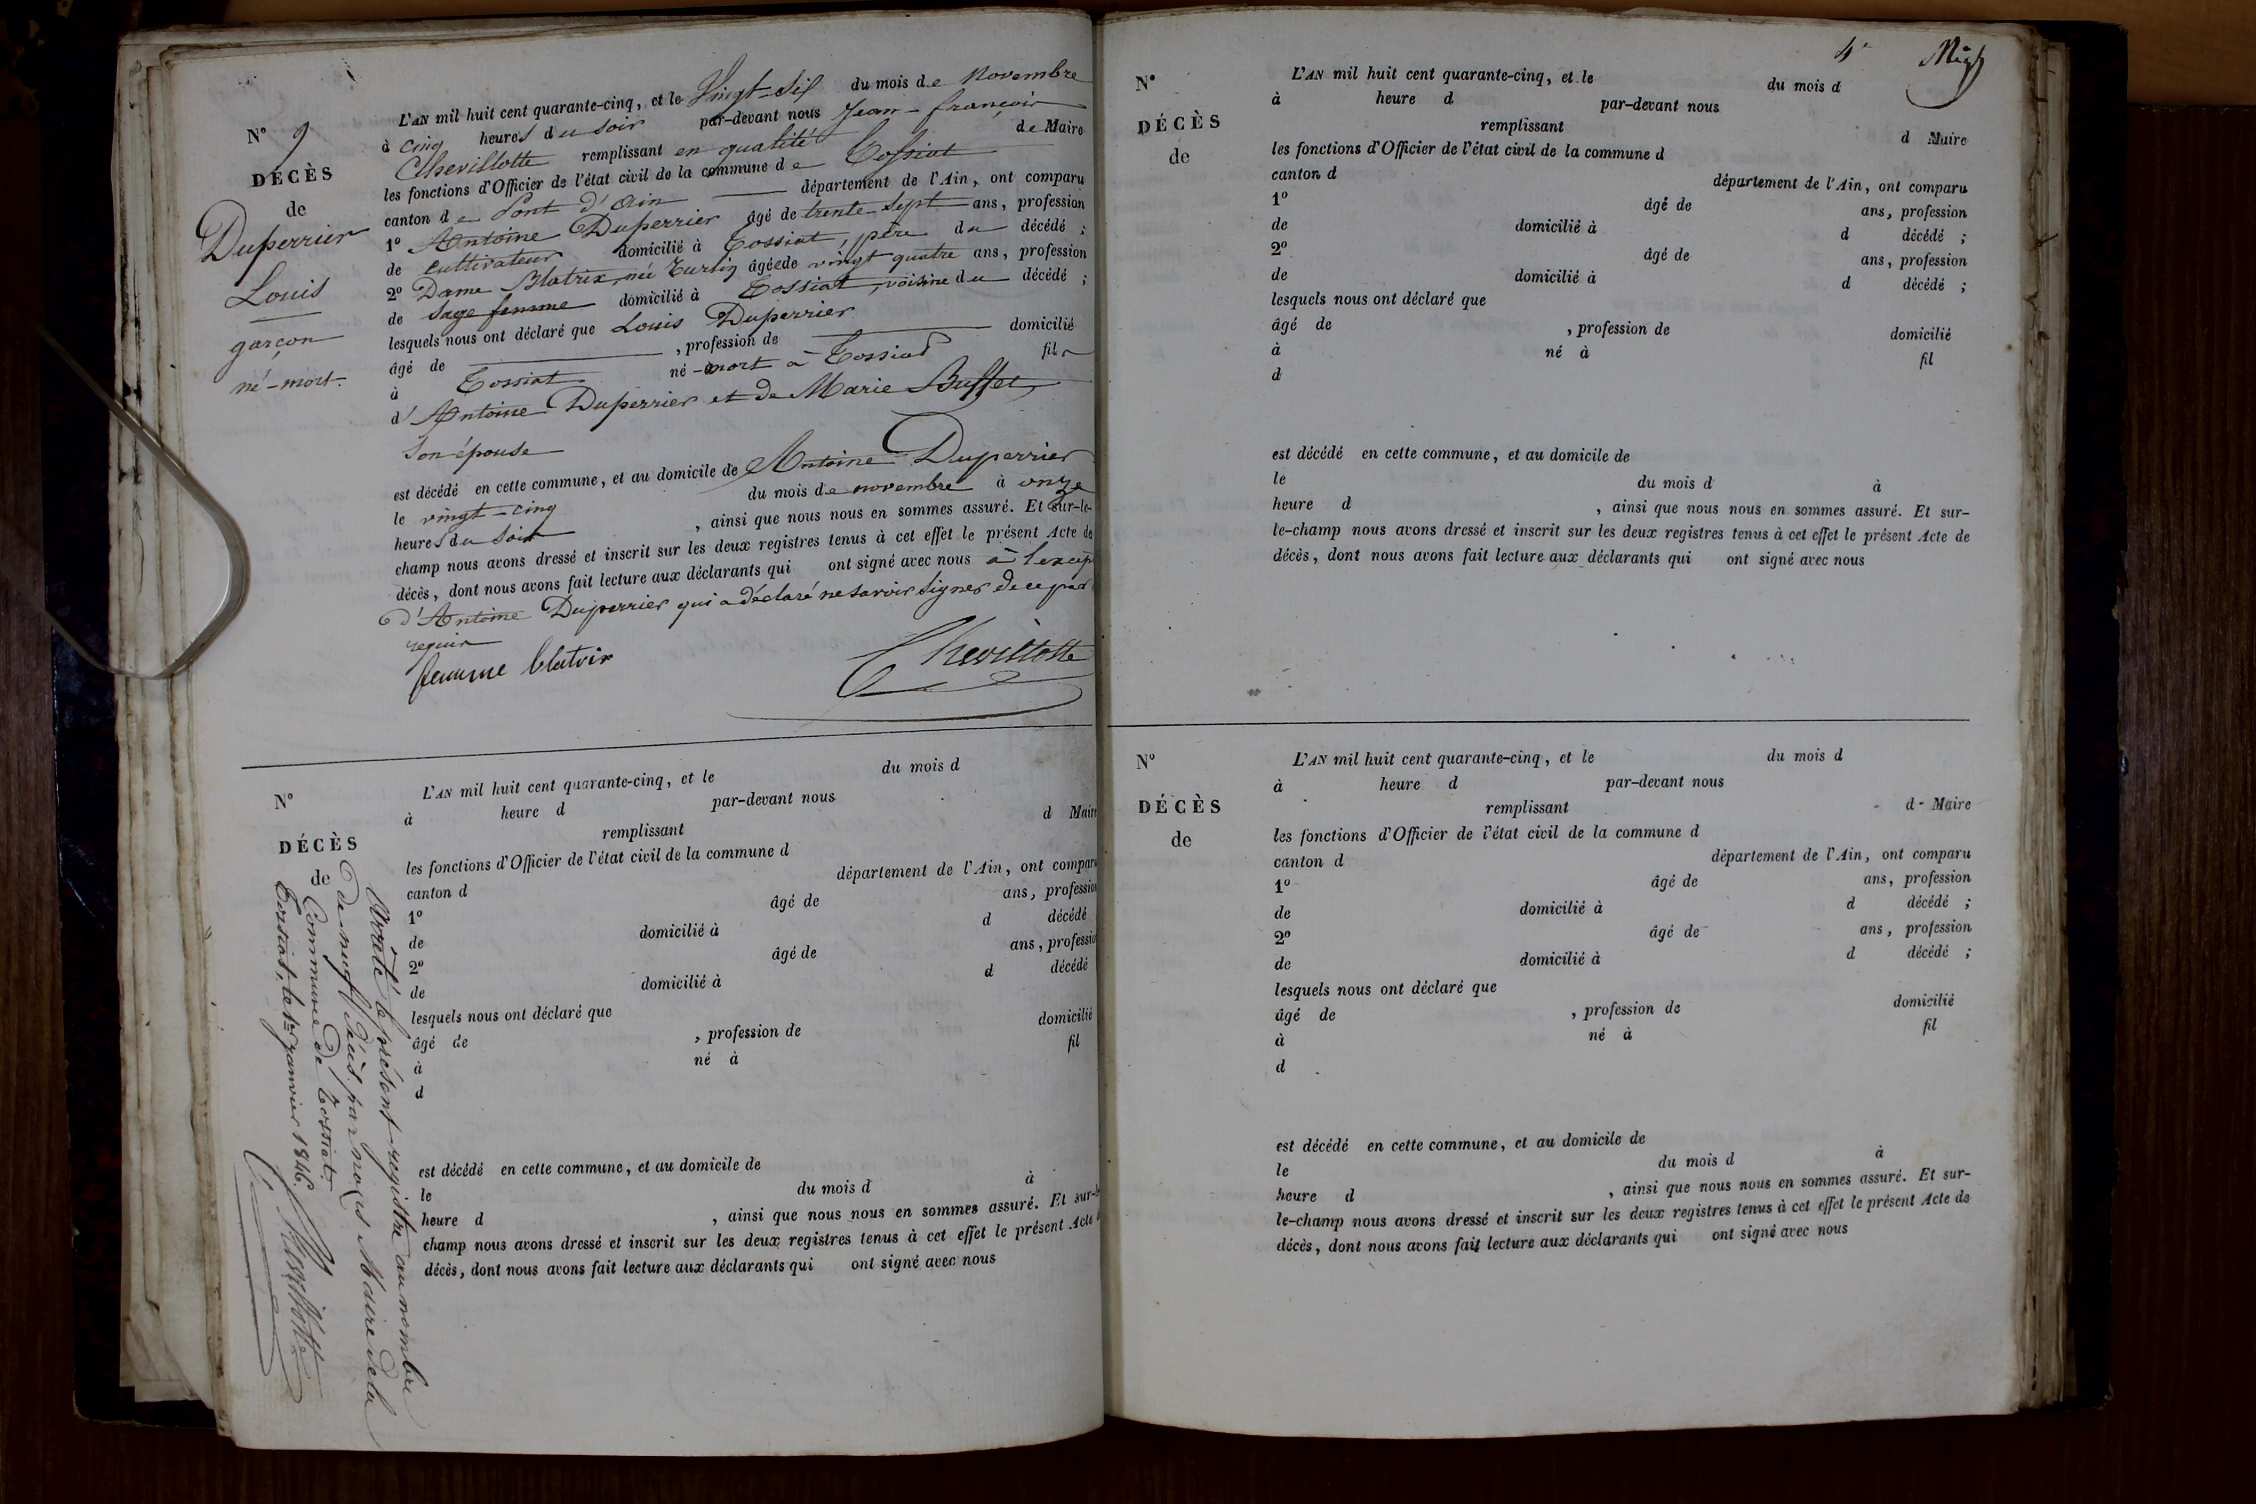 N° 9
DÉCÈS
de
Duperrier
Louis
garçon
né-mort.
L'AN mil huit cent quarante-cinq, et le Vingt-six du mois de Novembre
à cinq heures du soir par-devant nous Jean-françois
Chevillotte remplissant en qualité de Maire
les fonctions d'Officier de l'état civil de la commune de Tossiat
canton de Pont d'Ain département de l'Ain, ont comparu
1° Antoine Duperrier âgé de trente-sept ans, profession
de cultivateur domicilié à Tossiat, père du décédé ;
2° Dame Blatrix, née âgée de vingt quatre ans, profession
de sage femme domicilié à Tossiat, voisine du décédé ;
lesquels nous ont déclaré que Louis Duperrier
âgé de , profession de domicilié
à Tossiat né-mort à Tossiat fils
d'Antoine Duperrier et de Marie Buffet
son épouse
est décédé en cette commune, et au domicile de Antoine Duperrier
le vingt-cinq du mois de novembre à onze
heures du soir , ainsi que nous nous en sommes assuré. Et sur-le-
champ nous avons dressé et inscrit sur les deux registres tenus à cet effet le présent Acte de
décès, dont nous avons fait lecture aux déclarants qui ont signé avec nous à l'excep
d'Antoine Duperrier qui a déclaré ne savoir signer de ce
requis
femme blatrix Chevillotte
N°
DÉCÈS
de
L'AN mil huit cent quarante-cinq, et le du mois d
à heure d par-devant nous
remplissant d Maire
les fonctions d'Officier de l'état civil de la commune d
canton d département de l'Ain, ont comparu
1° âgé de ans, profession
de domicilié à d décédé
2° âgé de ans, profession
de domicilié à d décédé
lesquels nous ont déclaré que
âgé de , profession de domicilié
à né à fil
d
est décédé en cette commune, et au domicile de
le du mois d à
heure d , ainsi que nous nous en sommes assuré. Et sur-le-
champ nous avons dressé et inscrit sur les deux registres tenus à cet effet le présent Acte
décès, dont nous avons fait lecture aux déclarants qui ont signé avec nous
Arrêté le présent registre au nombre
de neuf décès par nous Maire de la
Commune de Tossiat,
Tossiat, le 1er janvier 1846.
Chevillotte
4e
N°
DÉCÈS
de
L'AN mil huit cent quarante-cinq, et le du mois d
à heure d par-devant nous
remplissant d Maire
les fonctions d'Officier de l'état civil de la commune d
canton d département de l'Ain, ont comparu
1° âgé de ans, profession
de domicilié à d décédé ;
2° âgé de ans, profession
de domicilié à d décédé ;
lesquels nous ont déclaré que
âgé de , profession de domicilié
à né à fil
d
est décédé en cette commune, et au domicile de
le du mois d à
heure d , ainsi que nous nous en sommes assuré. Et sur-
le-champ nous avons dressé et inscrit sur les deux registres tenus à cet effet le présent Acte de
décès, dont nous avons fait lecture aux déclarants qui ont signé avec nous
N°
DÉCÈS
de
L'AN mil huit cent quarante-cinq, et le du mois d
à heure d par-devant nous
remplissant d Maire
les fonctions d'Officier de l'état civil de la commune d
canton d département de l'Ain, ont comparu
1° âgé de ans, profession
de domicilié à d décédé ;
2° âgé de ans, profession
de domicilié à d décédé ;
lesquels nous ont déclaré que
âgé de , profession de domicilié
à né à fil
d
est décédé en cette commune, et au domicile de
le du mois d à
heure d , ainsi que nous nous en sommes assuré. Et sur-
le-champ nous avons dressé et inscrit sur les deux registres tenus à cet effet le présent Acte de
décès, dont nous avons fait lecture aux déclarants qui ont signé avec nous